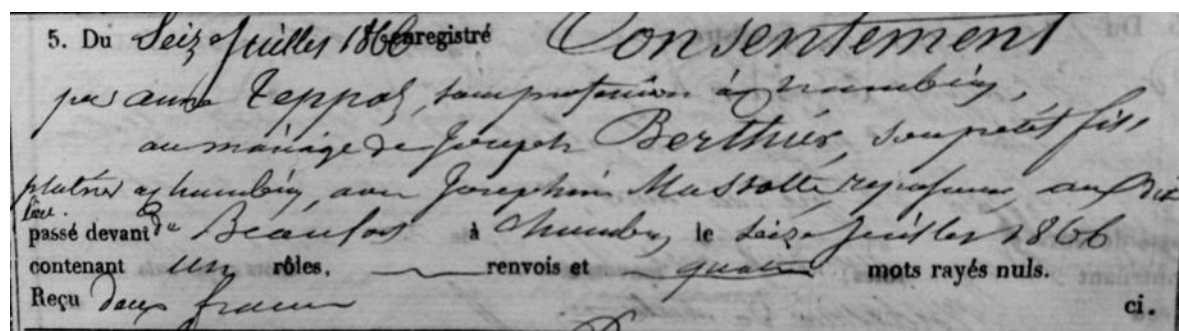 5. Du Seize Juillet 1866 enregistré Consentement
par anne Teppaz, sans profession à Chambéry,
au mariage de Joseph Berthier, son petit fils
platrier à Chambéry, avec Josephine Massotte, repasseuse, au dit
lieu.
passé devant Me Beaufort à Chambéry le seize Juillet 1866
contenant un rôles, renvois et quatre mots rayés nuls.
Reçu deux francs ci.